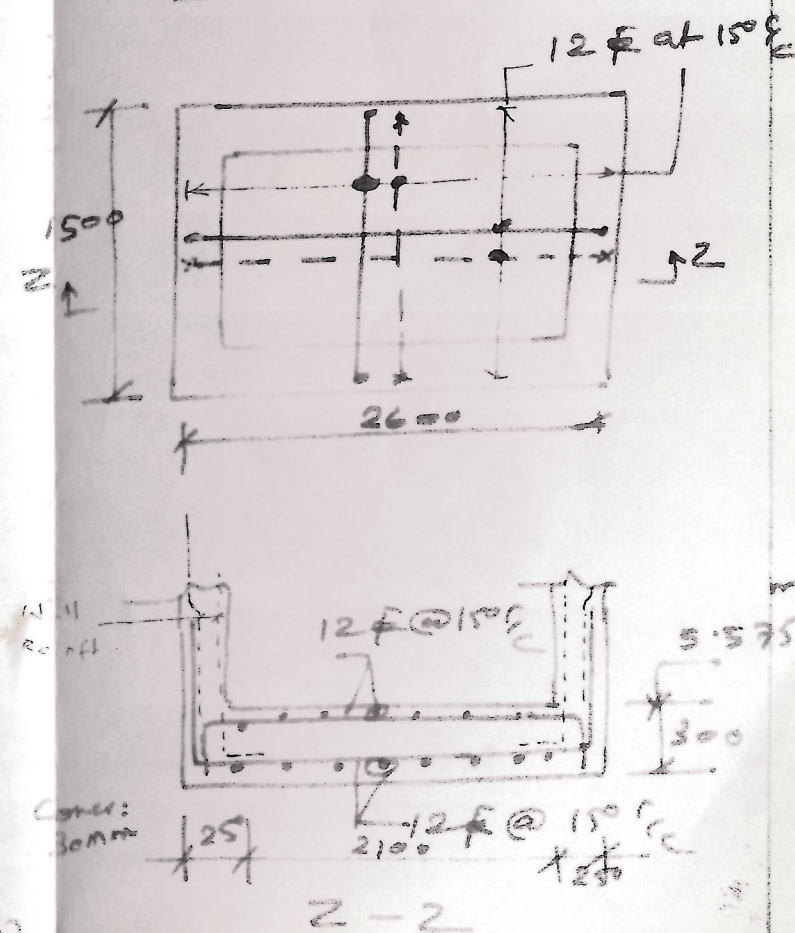 12 ⌀ at 150 c/c
1500
Z
Z
2600
12 ⌀ @ 150 c/c
5.575
300
Cover:
30mm
25
2100
12 ⌀ @ 150 c/c
250
Z - Z